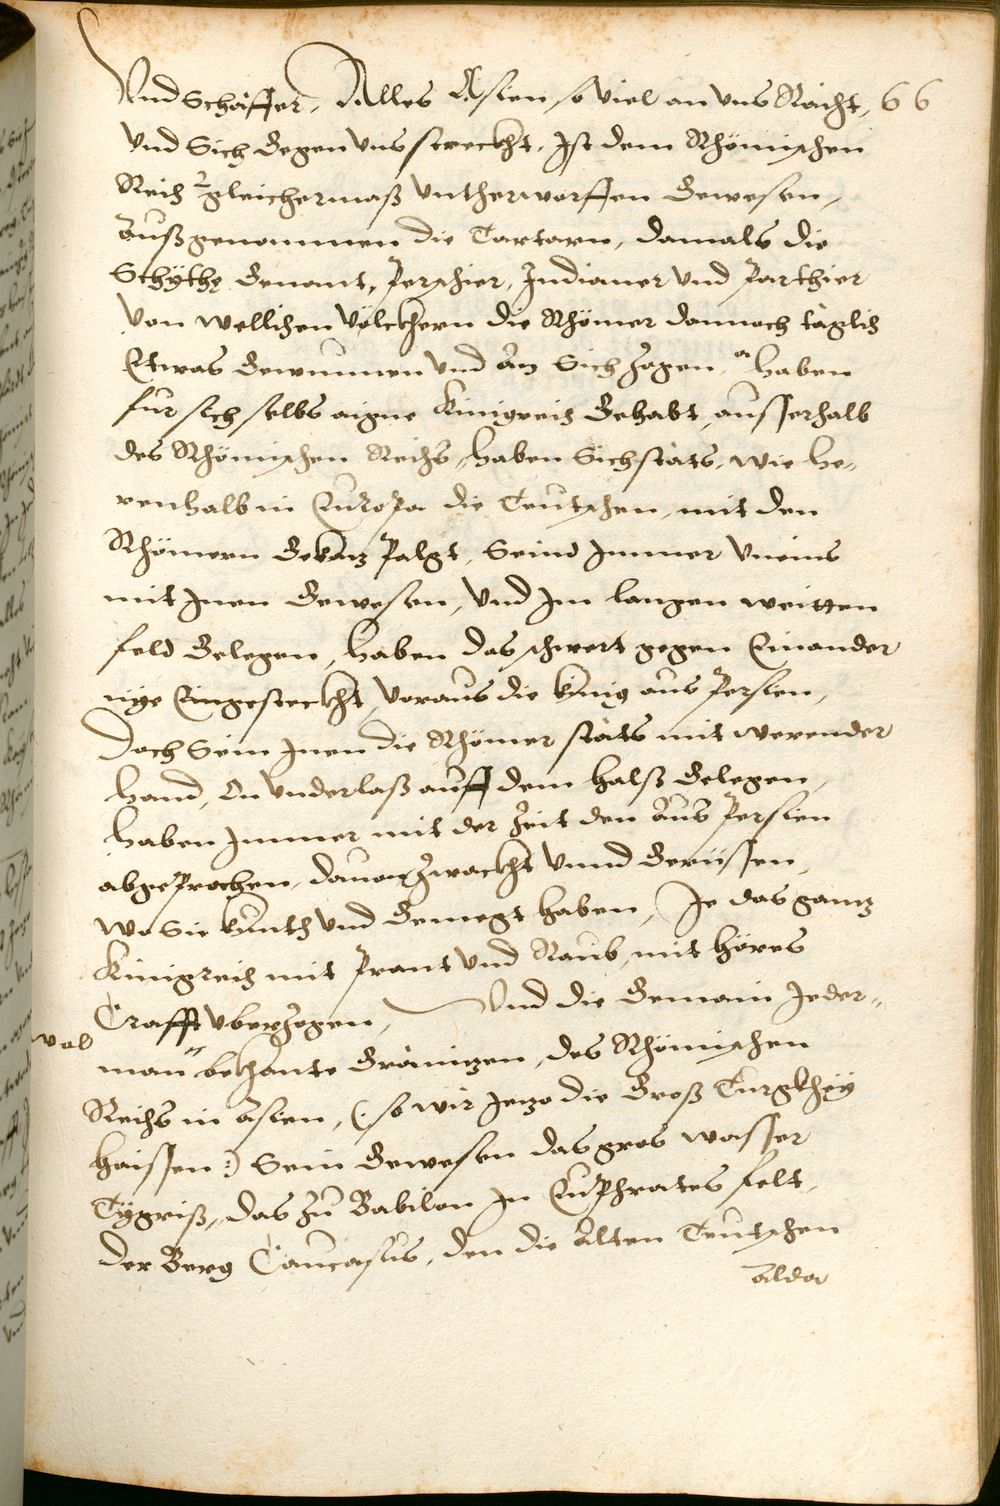 Vnd Schäffer, Alles Asien so viel an vns Räicht, 66
vnd Sich Gegen vns streckht, Ist dem Rhömischen
Reich gleichermaß vntherworffen Gewesen,
außgenommen die Tartarn, damals die
Schythe Genant, Perschier, Indianer vnd Parthier
von wellichen völckhern die Rhömer dannoch täglich
Etwas Gewunnen vnd an Sich zogen, haben
fur sich selbs aigne Künigreich Gehabt, ausserhalb
des Rhömischen Reichs, haben Sich stäts, wie he-
renhalb in Europa die Teutschen, mit den
Rhömern Gepalgt, Seind Immer vneins
mit Inen Gewesen, vnd Im langen weitten
feld Gelegen, haben das schwert gegen Einander
nye Eingesteckht, voraus die künig aus Persien,
Doch Sein Inen die Rhömer stäts mit werender
hand, On vnderlaß auff dem halß Gelegen,
haben Immer mit der Zeit den aus Persien
abgeprochen, dauon Zwackht vnnd Gerüssen,
wo Sie kunth vnd Gemegt haben, Je das gantz
Künigreich mit Prant vnd Raub, mit höres
Crafft vberzogen, Vnd die Gemain Jeder-
vol
man bekhante Gränitzen, des Rhömischen
Reichs in Asien, (: so wir Jetzo die Groß Turgkhey
haissen :) Sein Gewesen das gros wasser
Tygriß, das zu Babilon In Euphrates felt,
der Berg Caucasus, den die Alten Teutschen
alda